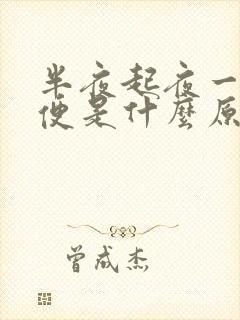 半夜起夜一
便是什麼原
曾成杰